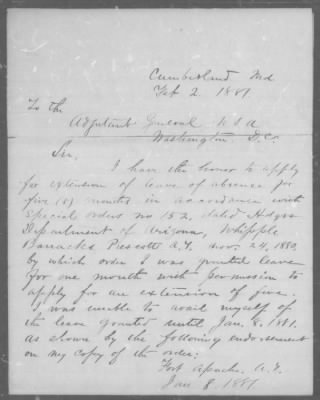 Cumberland Md
Feb 2 1881
To the
Adjutant General U.S.A
Washington D.C.
Sir,
I have the honor to apply
for extension of leave of absence for
five (5) months in accordance with
Special orders no 152, dated Hdqrs
Department of Arizona, Whipple
Barracks Prescott A.T. Nov. 24, 1880,
by which order I was granted leave
for one month with permission to
apply for an extension of five.
I was unable to avail myself of
the leave granted until Jan. 8, 1881.
as shown by the following endorsement
on my copy of the order:
Fort Apache. A.T.
Jan 8 1881